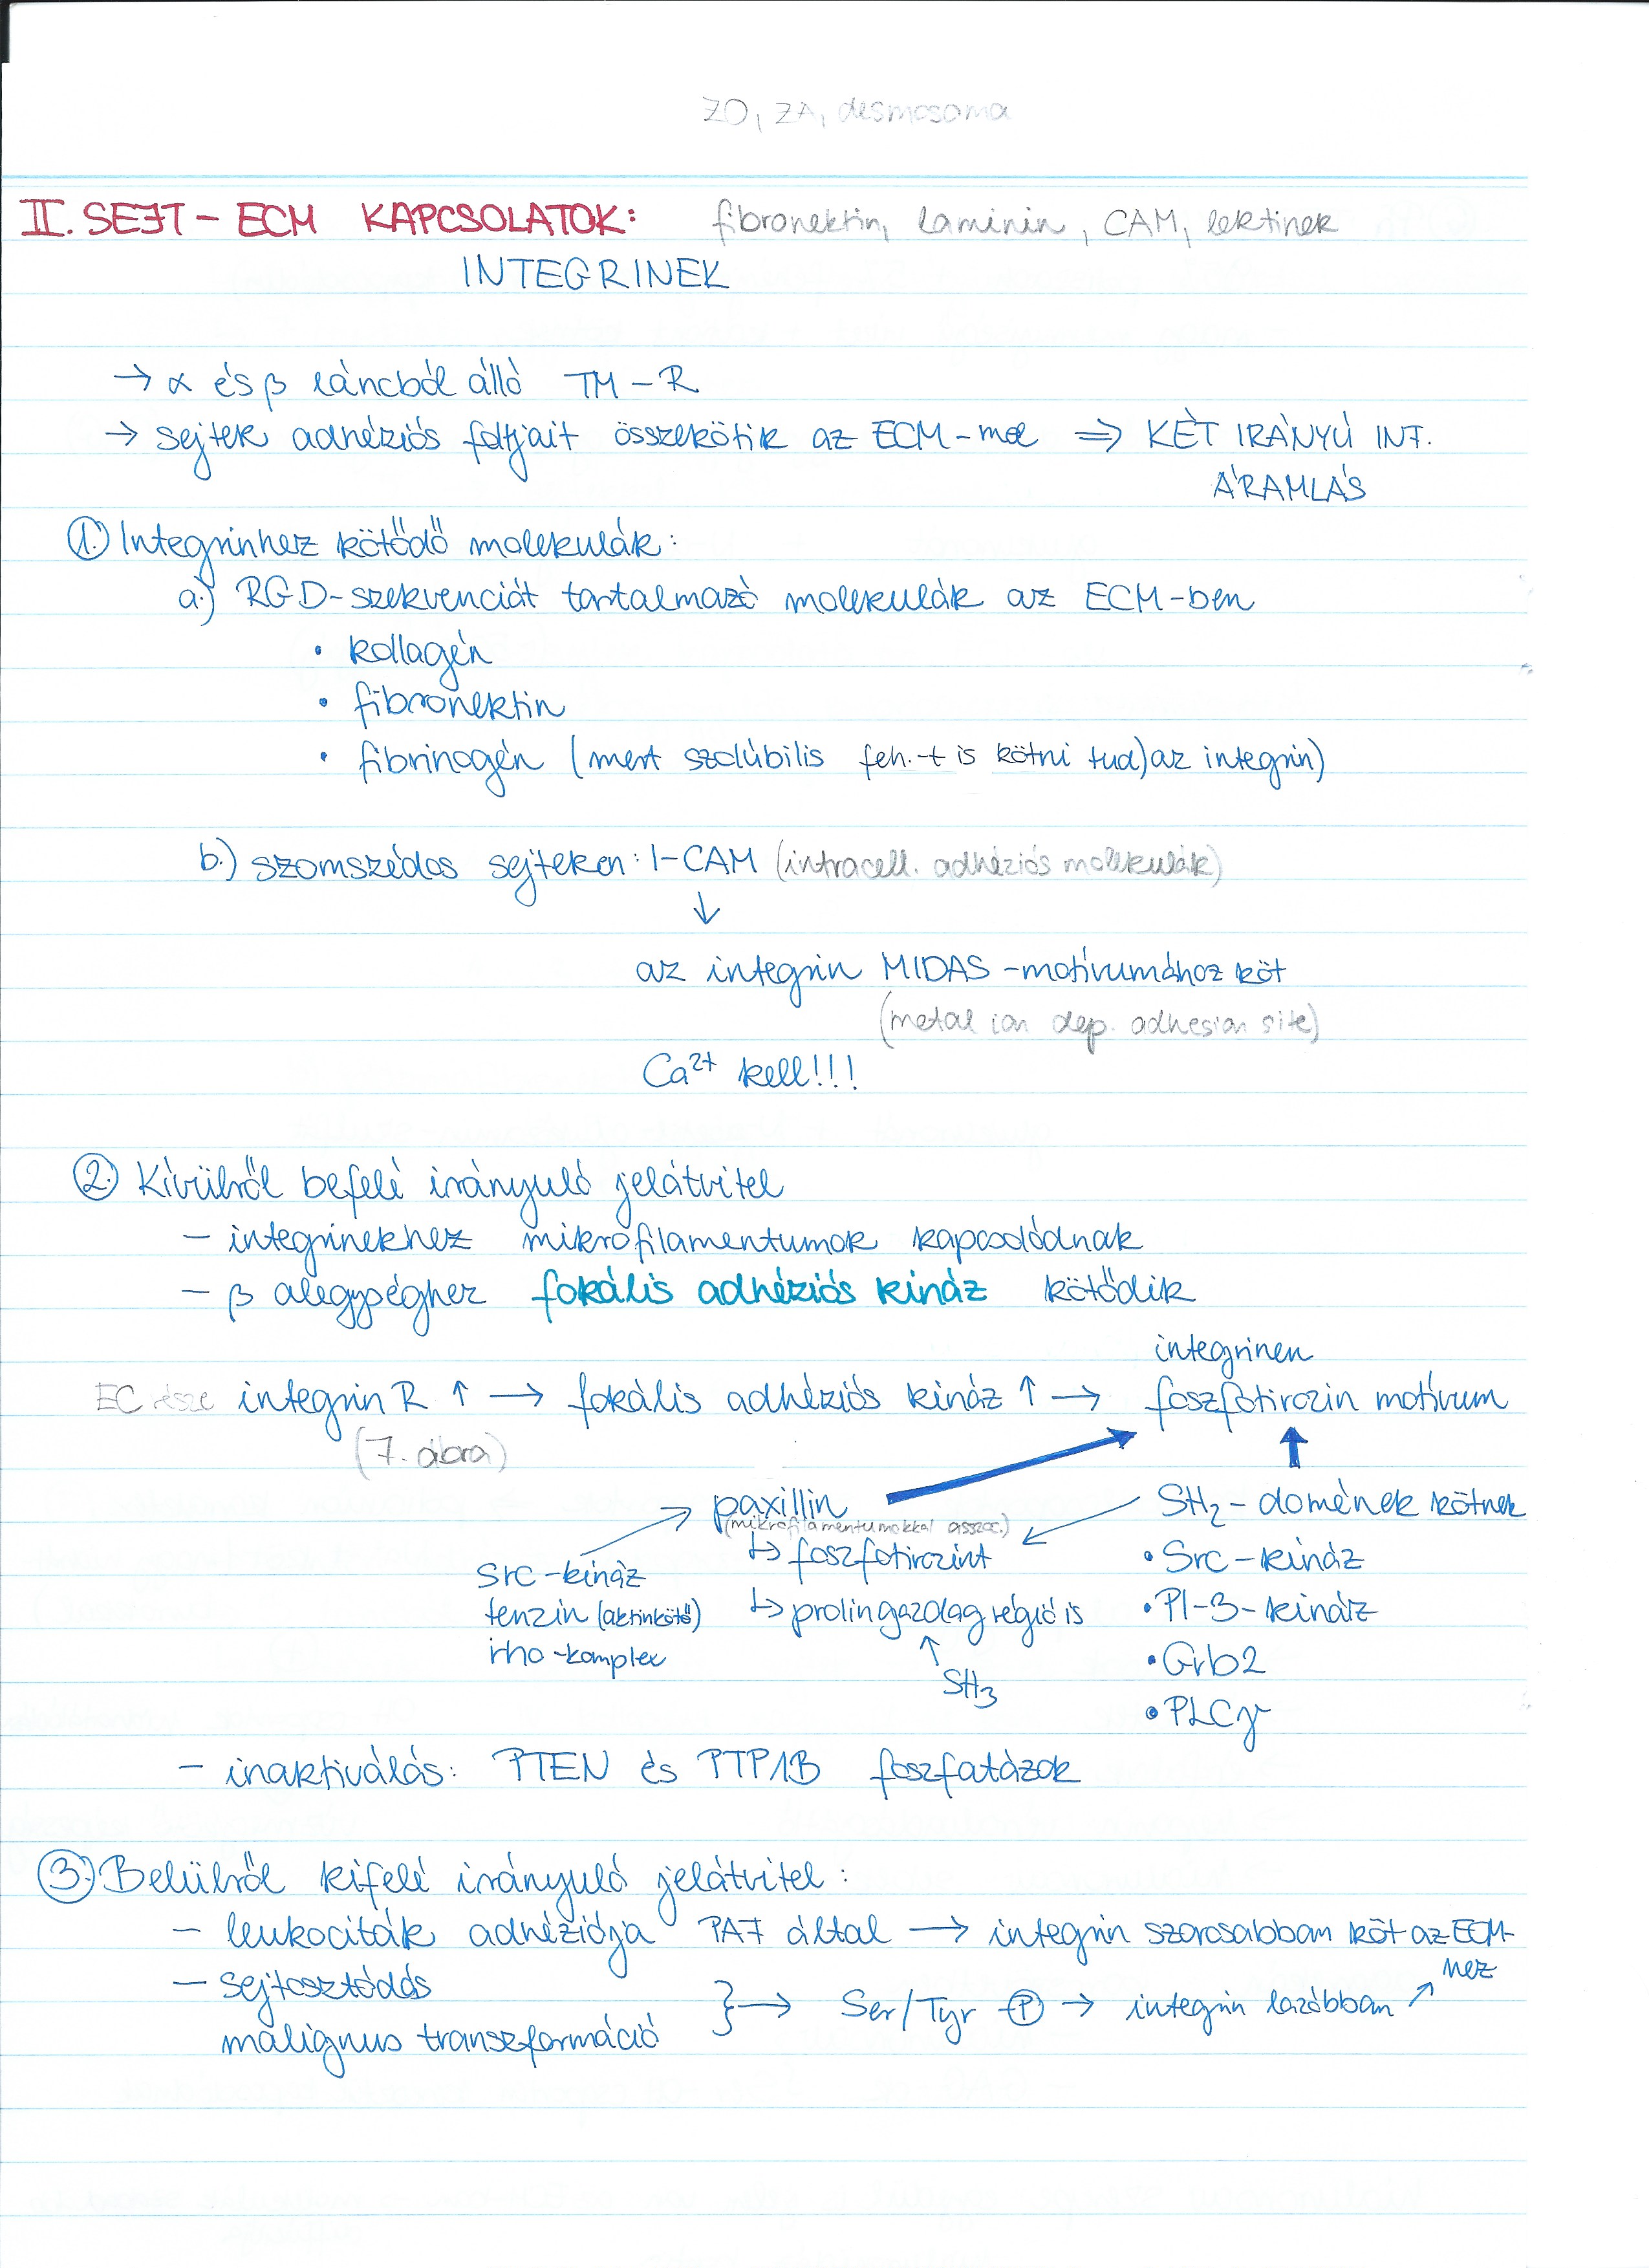 ZO, ZA, desmosoma
II. SEJT - ECM KAPCSOLATOK: fibronektin, laminin, CAM, lektinek
INTEGRINEK
→ α és β láncból álló TM-R
→ sejtek adhéziós foltjait összekötik az ECM-mel ⇒ KÉT IRÁNYÚ INF.
ÁRAMLÁS
1. Integrinhez kötődő molekulák:
a.) RGD-szekvenciát tartalmazó molekulák az ECM-ben
• kollagén
• fibronektin
• fibrinogén (mert szolúbilis feh.-t is kötni tud) az integrin)
b.) szomszédos sejteken: I-CAM (intracell. adhéziós molekulák)
↓
az integrin MIDAS-motívumához köt
(metal ion dep. adhesion site)
Ca²⁺ kell!!!
2. Kívülről befelé irányuló jelátvitel
- integrinekhez mikrofilamentumok kapcsolódnak
- β alegységhez fokális adhéziós kináz kötődik
integrinen
EC része integrin R ↑ → fokális adhéziós kináz ↑ → foszfotirozin motívum
(7. ábra)
paxillin SH₂-domének kötnek
(mikrofilamentumokkal assoc.)
↳ foszfotirozint • Src-kináz
Src-kináz
tenzin (aktinkötő) ↳ prolingazdag régió is • PI-3-kináz
rho-komplex ↑ • Grb2
SH₃
• PLCγ
- inaktiválás: PTEN és PTP1B foszfatázok
3. Belülről kifelé irányuló jelátvitel:
- leukociták adhéziója PAF által → integrin szorosabban köt az ECM-
hez
- sejtosztódás
} → Ser/Tyr -P → integrin lazábban ↗
malignus transzformáció